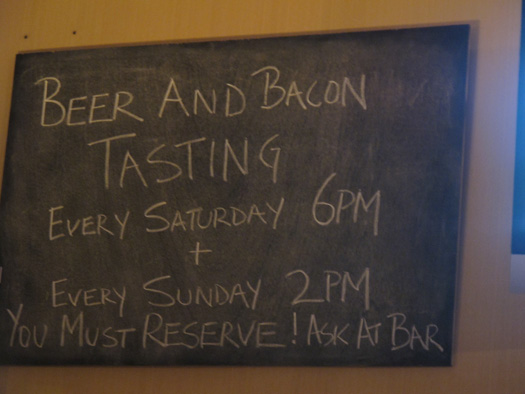 BEER AND BACON
TASTING
EVERY SATURDAY 6PM
+
EVERY SUNDAY 2PM
YOU MUST RESERVE! ASK AT BAR